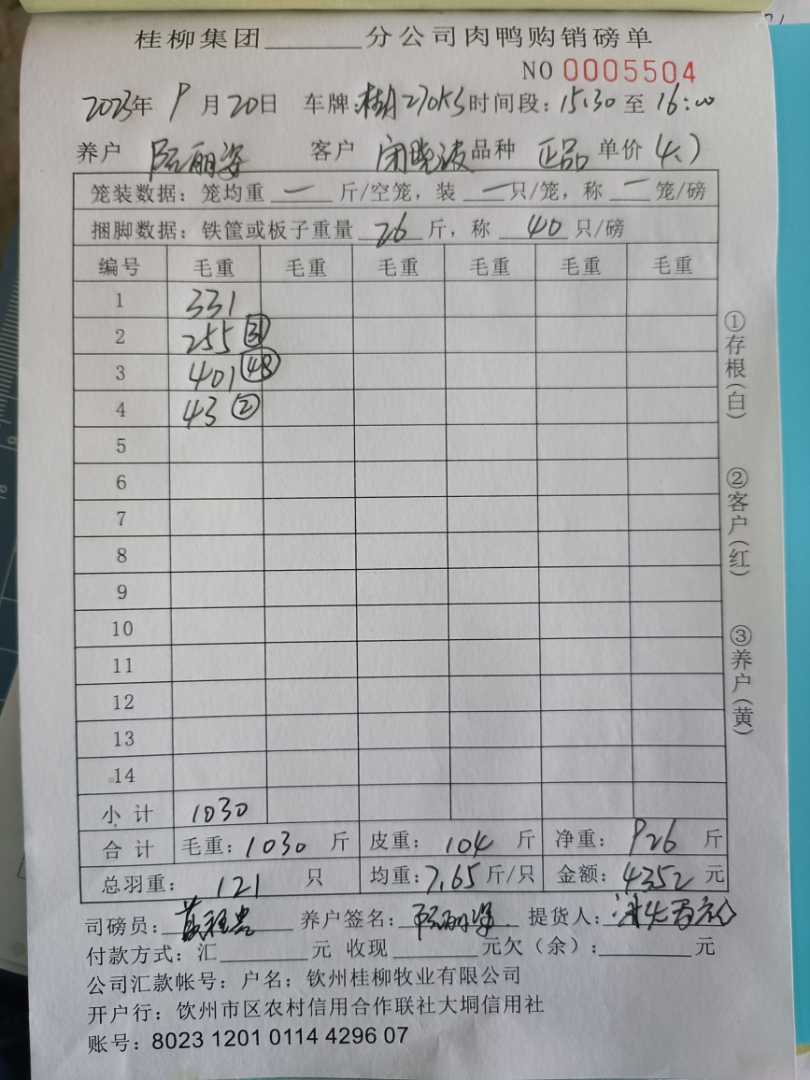 桂柳集团______分公司肉鸭购销磅单
NO 0005504
2023年 9月20日 车牌:桂 270K5 时间段:15:30至16:00
养户 阮丽姿 客户 闭晓波 品种 正品 单价 4.7
笼装数据:笼均重 一 斤/空笼,装 一 只/笼,称 一 笼/磅
捆脚数据:铁筐或板子重量 26 斤,称 40 只/磅
编号 毛重 毛重 毛重 毛重 毛重 毛重
1 331
2 255 ㉛
3 401 ㊽
4 43 ②
5
6
7
8
9
10
11
12
13
14
小计 1030
合计 毛重:1030斤 皮重:104斤 净重:926斤
总羽重:121只 均重:7.65斤/只 金额:4352元
司磅员: 养户签名:阮丽姿 提货人:
付款方式:汇______元 收现______元欠(余):______元
公司汇款帐号:户名:钦州桂柳牧业有限公司
开户行:钦州市区农村信用合作联社大垌信用社
账号:8023 1201 0114 4296 07
①存根(白)
②客户(红)
③养户(黄)